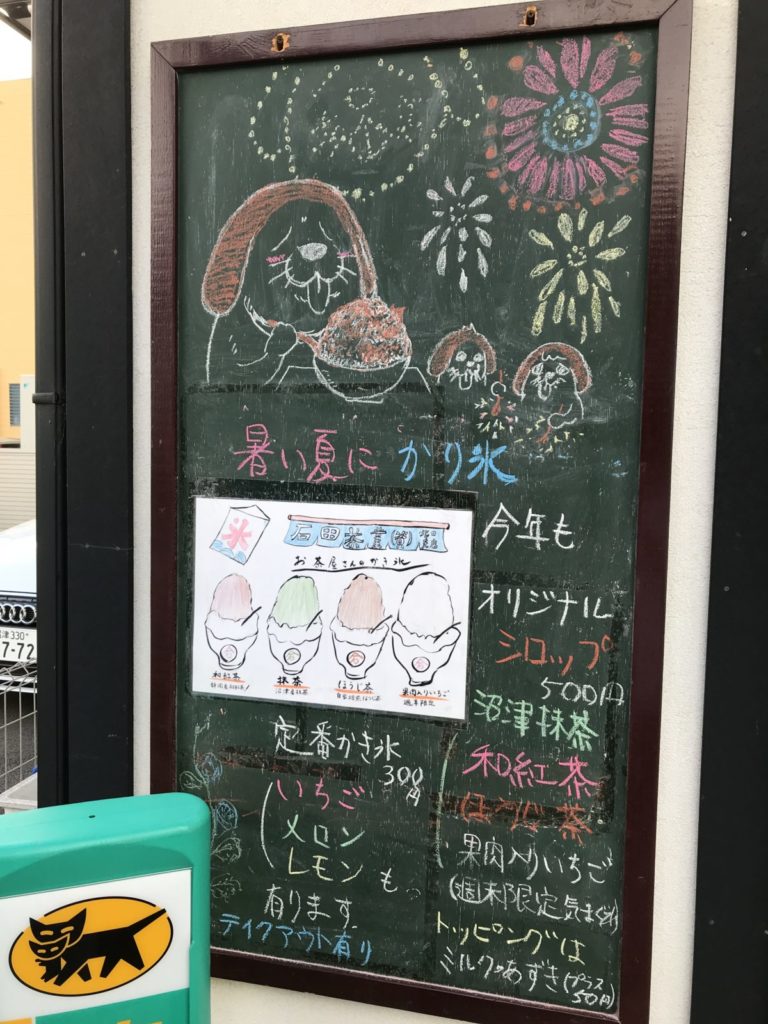 暑い夏に かり氷
氷
お茶屋さんのかき氷
和紅茶
抹茶
沼津産抹茶
ほうじ茶
果肉入りいちご
週末限定
今年も
オリジナル
シロップ
500円
沼津抹茶
和紅茶
ほうじ茶
果肉入りいちご
(週末限定気まぐれ)
トッピングは
ミルクorあずき(プラス
50円)
定番かき氷
300円
いちご
メロン
レモン も
有ります
テイクアウト有り
330
7-72